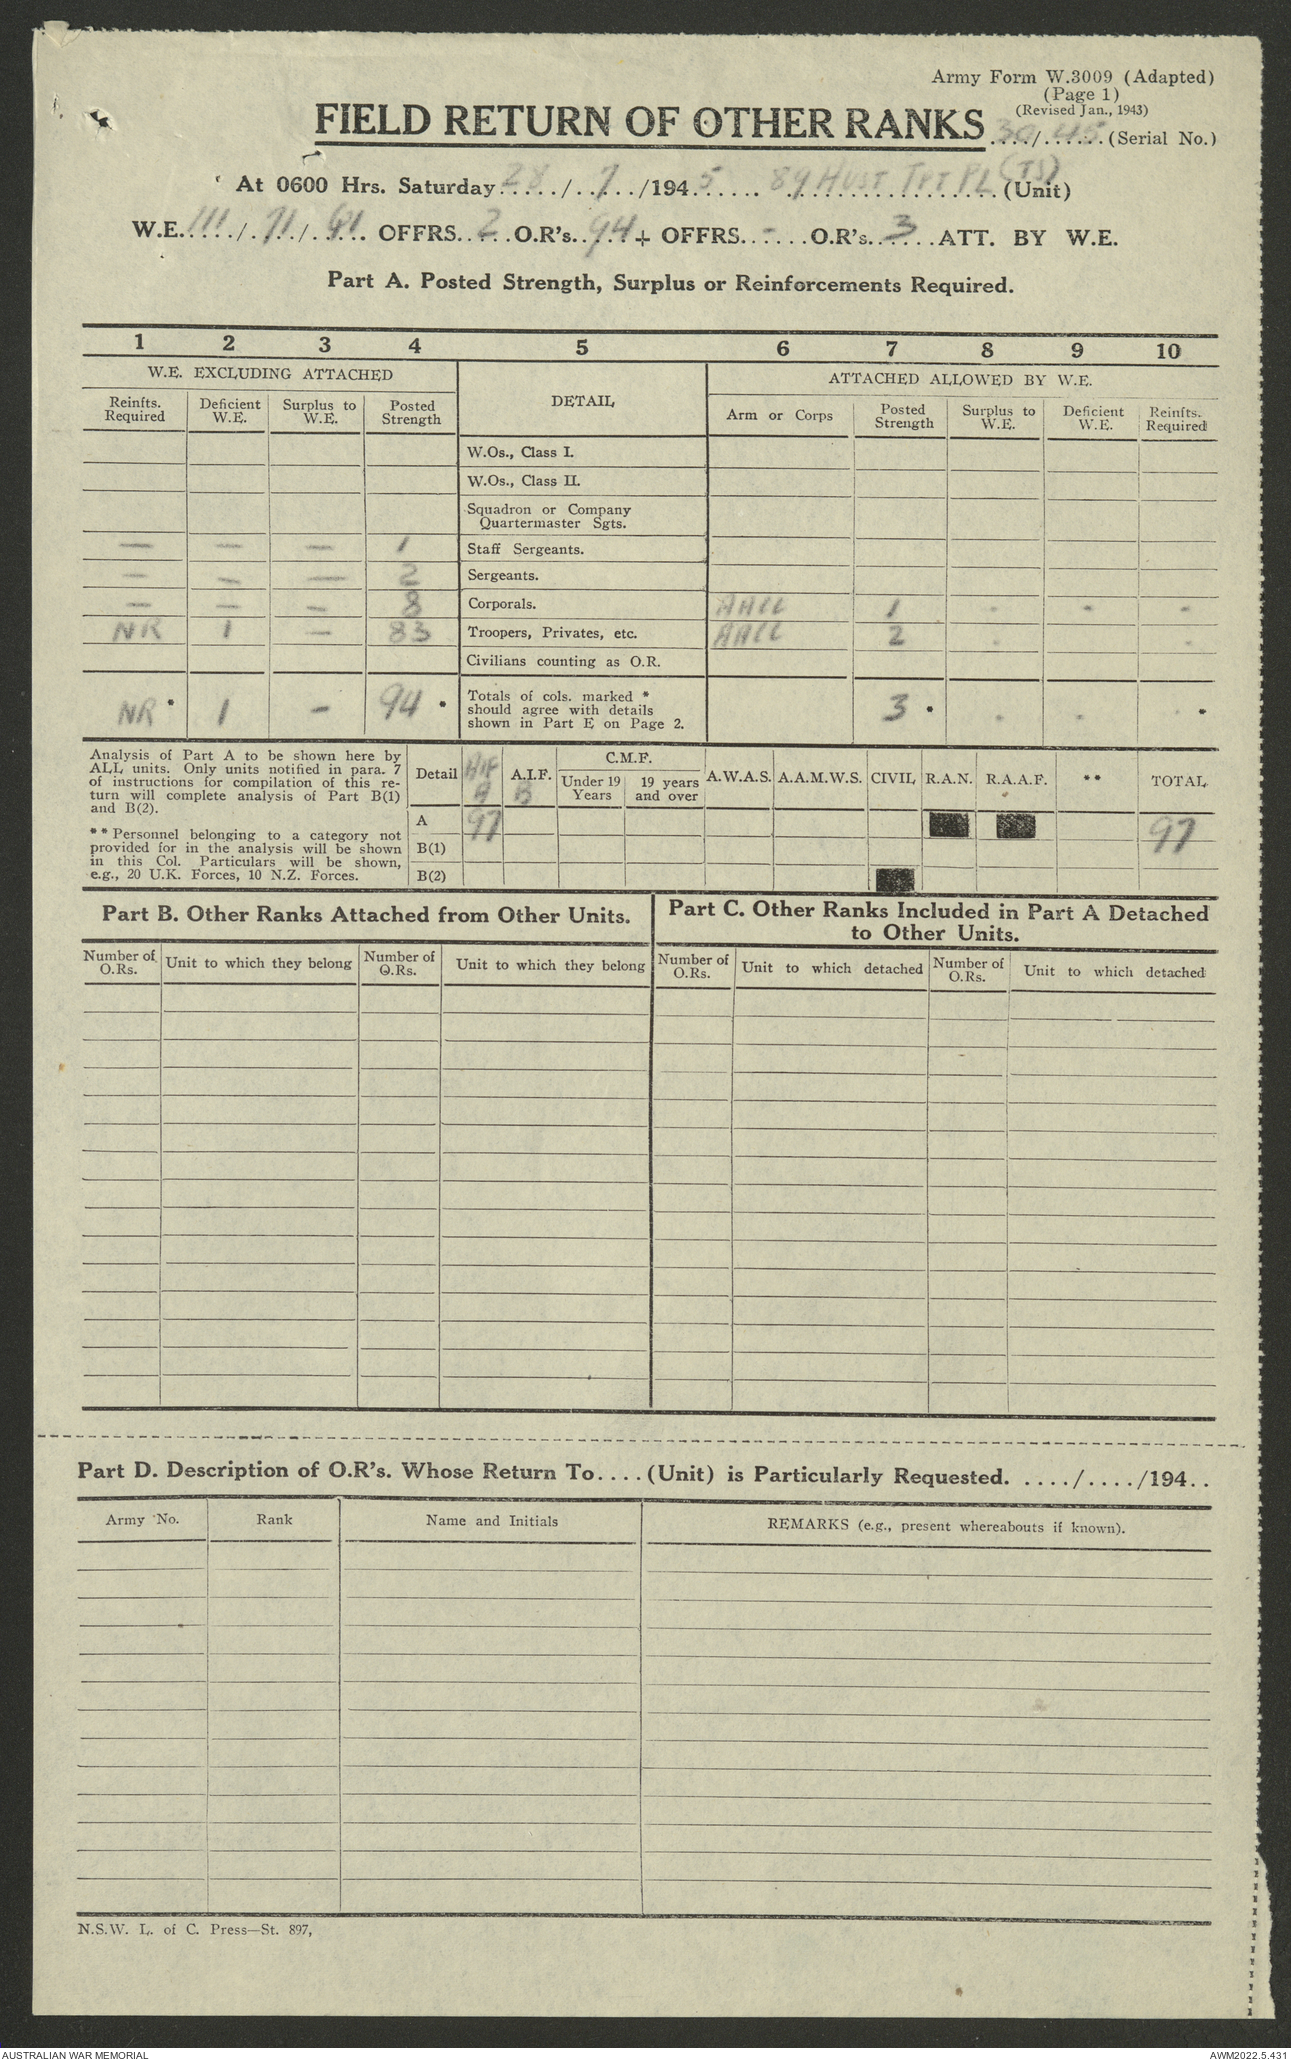 Army Form W.3009 (Adapted)
(Page 1)
(Revised Jan., 1943)
FIELD RETURN OF OTHER RANKS 30/45 (Serial No.)
At 0600 Hrs. Saturday 28/7/1945 89 Tpt Pl (TS) (Unit)
W.E. 111/71/ OFFRS. 2 O.R's. 94 + OFFRS. - O.R's. 3 ATT. BY W.E.
Part A. Posted Strength, Surplus or Reinforcements Required.
1 2 3 4 5 6 7 8 9 10
W.E. EXCLUDING ATTACHED DETAIL ATTACHED ALLOWED BY W.E.
Reinfts. Required Deficient W.E. Surplus to W.E. Posted Strength Arm or Corps Posted Strength Surplus to W.E. Deficient W.E. Reinfts. Required
W.Os., Class I.
W.Os., Class II.
Squadron or Company
Quartermaster Sgts.
— — — 1 Staff Sergeants.
— — — 2 Sergeants.
— — — 8 Corporals. AACC 1 - - -
NR 1 — 83 Troopers, Privates, etc. AACC 2 - -
Civilians counting as O.R.
NR * 1 — 94 * Totals of cols. marked * 3 * - - - *
should agree with details
shown in Part E on Page 2.
Analysis of Part A to be shown here by
ALL units. Only units notified in para. 7
of instructions for compilation of this re-
turn will complete analysis of Part B(1)
and B(2).
** Personnel belonging to a category not
provided for in the analysis will be shown
in this Col. Particulars will be shown,
e.g., 20 U.K. Forces, 10 N.Z. Forces.
Detail AIF A A.I.F. B C.M.F. Under 19 Years 19 years and over A.W.A.S. A.A.M.W.S. CIVIL R.A.N. R.A.A.F. ** TOTAL
A 97 97
B(1)
B(2)
Part B. Other Ranks Attached from Other Units.
Part C. Other Ranks Included in Part A Detached
to Other Units.
Number of O.Rs. Unit to which they belong Number of O.Rs. Unit to which they belong Number of O.Rs. Unit to which detached Number of O.Rs. Unit to which detached
Part D. Description of O.R's. Whose Return To.... (Unit) is Particularly Requested. ..../..../194..
Army No. Rank Name and Initials REMARKS (e.g., present whereabouts if known).
N.S.W. L. of C. Press—St. 897,
AUSTRALIAN WAR MEMORIAL AWM2022.5.431